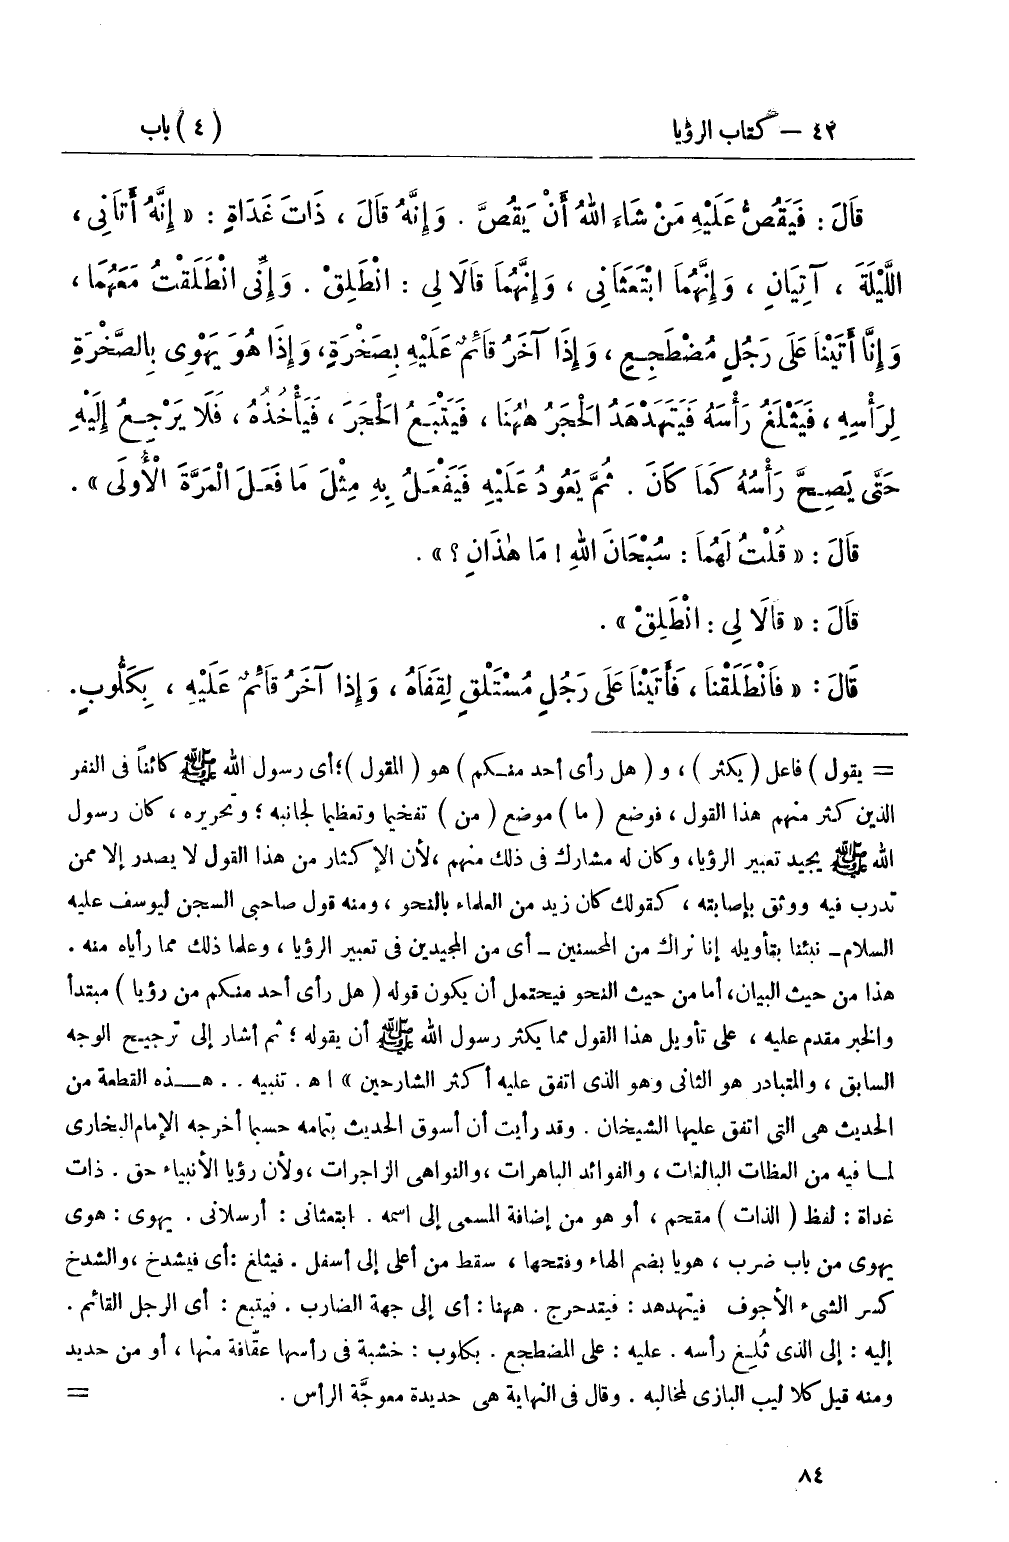 ٤٢ – كتاب الرؤيا (٤) باب
قَالَ : فَيَقُصُّ عَلَيْهِ مَنْ شَاءَ اللهُ أَنْ يَقُصَّ . وَإِنَّهُ قَالَ ، ذَاتَ غَدَاةٍ : « إِنَّهُ أَتَانِي ،
اللَّيْلَةَ ، آتِيَانِ ، وَإِنَّهُمَا ابْتَعَثَانِي ، وَإِنَّهُمَا قَالَا لِي : انْطَلِقْ . وَإِنِّي انْطَلَقْتُ مَعَهُمَا ،
وَإِنَّا أَتَيْنَا عَلَى رَجُلٍ مُضْطَجِعٍ ، وَإِذَا آخَرُ قَائِمٌ عَلَيْهِ بِصَخْرَةٍ، وَإِذَا هُوَ يَهْوِي بِالصَّخْرَةِ
لِرَأْسِهِ ، فَيَثْلَغُ رَأْسَهُ فَيَتَهَدْهَدُ الْحَجَرُ هٰهُنَا ، فَيَتْبَعُ الْحَجَرَ ، فَيَأْخُذُهُ ، فَلَا يَرْجِعُ إِلَيْهِ
حَتَّى يَصِحَّ رَأْسُهُ كَمَا كَانَ . ثُمَّ يَعُودُ عَلَيْهِ فَيَفْعَلُ بِهِ مِثْلَ مَا فَعَلَ الْمَرَّةَ الْأُولَى » .
قَالَ : « قُلْتُ لَهُمَا : سُبْحَانَ اللهِ ! مَا هٰذَانِ ؟ » .
قَالَ : « قَالَا لِي : انْطَلِقْ » .
قَالَ : « فَانْطَلَقْنَا ، فَأَتَيْنَا عَلَى رَجُلٍ مُسْتَلْقٍ لِقَفَاهُ ، وَإِذَا آخَرُ قَائِمٌ عَلَيْهِ ، بِكَلُّوبٍ.
= يقول ) فاعل ( يكثر ) ، و ( هل رأى أحد منكم ) هو ( المقول )؛أى رسول الله ﷺ كائناً فى النفر
الذين كثر منهم هذا القول ، فوضع ( ما ) موضع ( من ) تفخيما وتعظيما لجانبه ؛ وتحريره ، كان رسول
الله ﷺ يجيد تعبير الرؤيا، وكان له مشارك فى ذلك منهم ،لأن الإكثار من هذا القول لا يصدر إلا ممن
تدرب فيه ووثق بإصابته ، كقولك كان زيد من العلماء بالنحو ، ومنه قول صاحبى السجن ليوسف عليه
السلام– نبئنا بتأويله إنا نراك من المحسنين – أى من المجيدين فى تعبير الرؤيا ، وعلما ذلك مما رأياه منه .
هذا من حيث البيان، أما من حيث النحو فيحتمل أن يكون قوله ( هل رأى أحد منكم من رؤيا ) مبتدأ
والخبر مقدم عليه ، على تأويل هذا القول مما يكثر رسول الله ﷺ أن يقوله ؛ ثم أشار إلى ترجيح الوجه
السابق ، والمتبادر هو الثانى وهو الذى اتفق عليه أكثر الشارحين » ا ه . تنبيه . . هذه القطعة من
الحديث هى التى اتفق عليها الشيخان . وقد رأيت أن أسوق الحديث بتمامه حسبما أخرجه الإمام البخارى
لما فيه من العظات البالغات ، والفوائد الباهرات ،والنواهى الزاجرات ،ولأن رؤيا الأنبياء حق . ذات
غداة : لفظ ( الذات ) مقحم ، أو هو من إضافة المسمى إلى اسمه . ابتعثانى : أرسلانى . يهوى : هوى
يهوى من باب ضرب ، هويا بضم الهاء وفتحها ، سقط من أعلى إلى أسفل . فيثلغ :أى فيشدخ ،والشدخ
كسر الشىء الأجوف فيتهدهد : فيتدحرج . ههنا : أى إلى جهة الضارب . فيتبع : أى الرجل القائم .
إليه : إلى الذى ثُلِغ رأسه . عليه : على المضطجع . بكلوب : خشبة فى رأسها عقّافة منها ، أو من حديد
ومنه قيل كلاليب البازى لمخالبه . وقال فى النهاية هى حديدة معوجَّة الرأس . =
٨٤